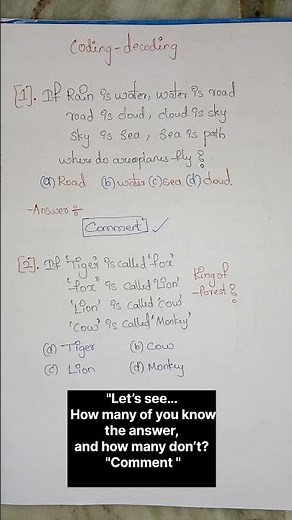 Coding-decoding
[1]. If Rain is water, water is road
road is cloud, cloud is sky
sky is sea, sea is path
where do aeroplanes fly?
(a) Road (b) water (c) sea (d) cloud.
Answer÷
Comment ✓
[2]. If 'Tiger' is called 'fox'
'fox' is called 'Lion'
'Lion' is called 'cow'
'Cow' is called 'Monkey'
King of
forest?
(a) Tiger (b) Cow
(c) Lion (d) Monkey
"Let's see...
How many of you know
the answer,
and how many don't?
"Comment "